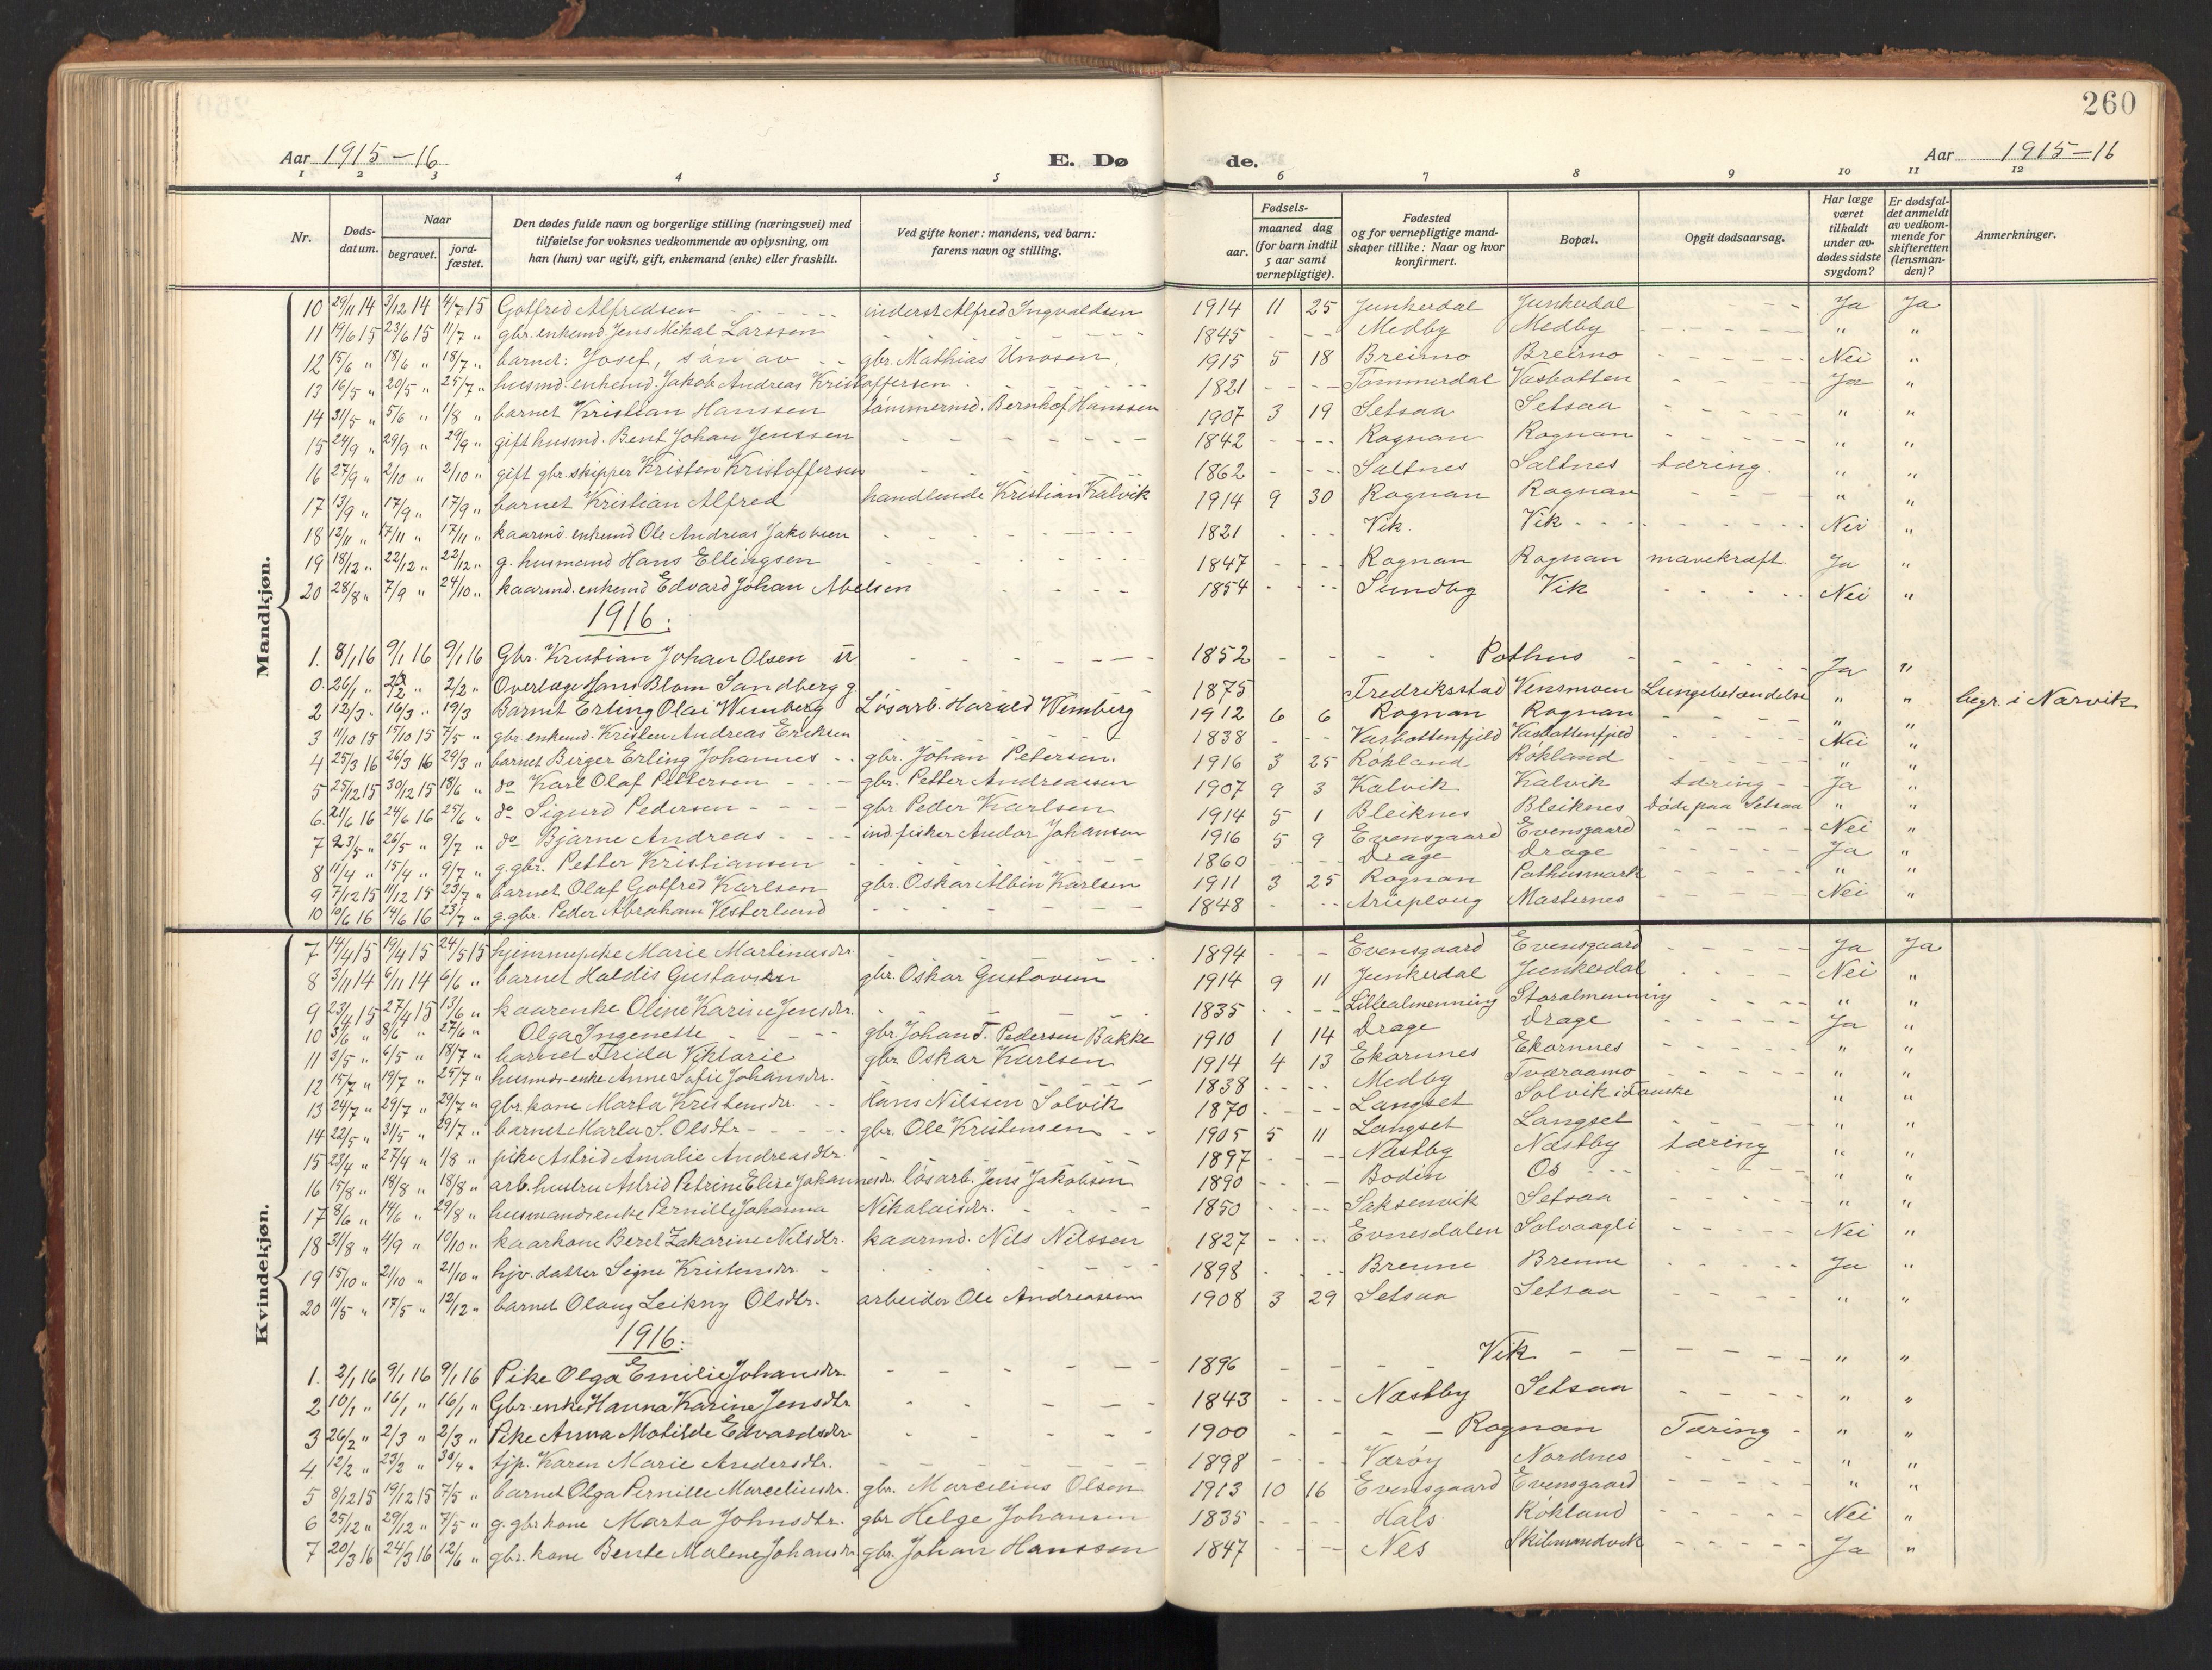 260
Aar 1915-16 E. Dø de. Aar 1915-16
1 2 3 4 5 6 7 8 9 10 11 12
Nr. Døds-datum. Naar begravet. jord-fæstet. Den dødes fulde navn og borgerlige stilling (næringsvei) med tilføielse for voksnes vedkommende av oplysning, om han (hun) var ugift, gift, enkemand (enke) eller fraskilt. Ved gifte koner: mandens, ved barn: farens navn og stilling. Fødsels- aar. maaned dag (for barn indtil 5 aar samt vernepligtige). Fødested og for vernepligtige mand-skaper tillike: Naar og hvor konfirmert. Bopæl. Opgit dødsaarsag. Har læge været tilkaldt under av-dødes sidste sygdom? Er dødsfal-det anmeldt av vedkom-mende for skifteretten (lensman-den)? Anmerkninger.
Mandkjøn.
10 29/11 14 3/12 14 4/7 15 Gotfred Alfredsen inderst Alfred Ingvaldsen 1914 11 25 Junkerdal Junkerdal - - Ja Ja
11 19/6 15 23/6 15 11/7 " gbr. enkemd. Jens Mikal Larssen - - - 1845 - - - Medby Medby - - - " "
12 15/6 " 18/6 " 18/7 " barnet: Josef, søn av - - gbr. Mathias Unosen 1915 5 18 Breimo Breimo - - - Nei "
13 16/5 " 20/5 " 25/7 " husmd. enkemd. Jakob Andreas Kristoffersen - - - 1821 - - - Tømmerdal Vasbotten - - - Ja "
14 31/5 " 5/6 " 1/8 " barnet Kristian Hanssen tømmermd. Bernhof Hanssen 1907 3 19 Setsaa Setsaa - - - " "
15 24/9 " 29/9 " 29/9 " gift husmd. Bent Johan Jenssen - - - 1842 - - - Rognan Rognan - - - " "
16 27/9 " 2/10 " 2/10 " gift gbr. skipper Kristen Kristoffersen - - - 1862 - - - Saltnes Saltnes tæring. " "
17 13/9 " 17/9 " 17/9 " barnet Kristian Alfred handlende Kristian Kalvik 1914 9 30 Rognan Rognan - - - " "
18 12/11 " 17/11 " 17/11 " kaarmd. enkemd Ole Andreas Jakobsen - - - 1821 - - - Vik. Vik - - - Nei "
19 18/12 " 22/12 " 22/12 " g. husmand Hans Ellingsen - - - 1847 - - - Rognan Rognan mavekræft. Ja "
20 28/8 " 7/9 " 24/10 " kaarmd. enkemd Edvard Johan Abelsen - - - 1854 - - - Sundby Vik - - - Nei "
1916:
1. 8/1 16 9/1 16 9/1 16 Gbr. Kristian Johan Olsen - - - 1852 - - - Pothus - - - Ja "
0. 26/1 " 2/2 " 2/2 " Overlæge Hans Blom Sandberg g. 1875 Fredriksstad Vensmoen Lungebetændelse " " begr. i Narvik
2 12/3 " 16/3 " 19/3 Barnet Erling Olai Wemberg Løsarb. Harald Wemberg 1912 6 6 Rognan Rognan - - - " "
3 11/10 15 15/10 15 7/5 " gbr. enkemd. Kristen Andreas Eriksen 1838 - - Vasbottenfjeld Vasbottenfjeld - - - Nei "
4 25/3 16 26/3 16 29/3 " barnet Birger Erling Johannes - - gbr. Johan Petersen. 1916 3 25 Røkland Røkland - - - " "
5 25/12 15 30/12 15 18/6 " do Karl Olaf Pettersen - - - gbr. Petter Andreassen 1907 9 3 Kalvik Kalvik tæring - Ja "
6. 21/6 16 24/6 16 25/6 " do Sigurd Pedersen - - - gbr Peder Karlsen 1914 5 1 Bleiknes Bleiknes døde paa Setsaa " "
7 23/5 " 26/5 " 9/7 " do Bjarne Andreas - - - ind. fisker Andor Johansen 1916 5 9 Evensgaard Evensgaard - - - Nei "
8 11/4 " 15/4 " 9/7 " g. gbr. Petter Kristiansen - - - 1860 - - - Drage Drage - - - Ja "
9 7/12 15 11/12 15 23/7 " barnet Olaf Gotfred Karlsen gbr. Oskar Albin Karlsen 1911 3 25 Rognan Pothusmark - - - " "
10 10/6 16 14/6 16 23/7 " g. gbr. Peder Abraham Vesterlund - - - 1848 - - - Arieploug Masternes - - - Nei "
Kvindekjøn.
7 14/4 15 19/4 15 24/5 15 hjemmepike Marie Martinusdtr. - - - 1894 - - Evensgaard Evensgaard - - - Ja Ja
8 3/11 14 6/11 14 6/6 " barnet Haldis Gustavsen gbr. Oskar Gustavsen 1914 9 11 Junkerdal Junkerdal - - - Nei "
9 23/4 15 27/4 15 13/6 " kaarenke Oline Karine Jensdtr. - - - 1835 - - - Lillealmenning Storalmenning - - - " "
10 3/6 " 8/6 " 27/6 " Olga Ingenette - - gbr. Johan T. Pedersen Bakke 1910 1 14 Drage Drage - - - Ja "
11 3/5 " 6/5 " 18/7 " barnet Frida Viktorie gbr Oskar Karlsen 1914 4 13 Ekornnes Ekornnes - - - " "
12 15/7 " 19/7 " 25/7 " husmds-enke Anne Sofie Johansdtr. 1838 - - - Medby Tværaamo - - - " "
13 24/7 " 29/7 " 29/7 " gbr. kone Marta Kristensdtr. - - Hans Nilssen Solvik 1870 - - - Langset Solvik i Fauske " "
14 22/5 " 31/5 " 29/7 " barnet Marla S. Olsdtr - - - gbr. Ole Kristensen - - 1905 5 11 Langset Langset - - - " "
15 23/4 " 27/4 " 1/8 " pike Astrid Amalie Andreasdtr. - - - 1897 - - - Næstby Næstby tæring " "
16 15/8 " 18/8 " 18/8 " arb. hustru Astrid Petrine Elise Johannesdr. løsarb. Jens Jakobsen 1890 - - - Bodin Os - - - " "
17 8/6 " 14/6 " 29/8 " husmandsenke Pernille Johanna Nikolaisdr. - - - 1850 - - - Saksenvik Setsaa - - - " "
18 31/8 " 4/9 " 10/10 " kaarkone Beret Zakarine Nilsdtr. kaarmd. Nils Nilssen 1827 - - - Evnesdalen Solvaagli - - - Nei "
19 15/10 " 21/10 " 21/10 " hjv. datter Signe Kristensdtr. - - - 1898 - - - Brenne Brenne - - - Ja "
20 11/5 " 17/5 " 12/12 " barnet Olaug Leikny Olsdtr. arbeider Ole Andreassen 1908 3 29 Setsaa Setsaa - - - " "
1916:
1. 2/1 16 9/1 16 9/1 16 Pike Olga Emilie Johansdtr. - - - 1896 - - - Vik - - - " "
2 10/1 " 16/1 " 16/1 " Gbr. enke Hanna Karina Jensdtr. - - - 1843 - - - Næstby Setsaa - - - " "
3 26/2 " 2/3 " 2/3 " Pike Anna Motilde Edvardsdtr. - - - 1900 - - - Rognan Tæring - " "
4 12/2 " 23/2 " 30/4 " tjp. Karen Marie Andersdtr. - - - 1898 - - - Værøy Nordnes - - - " "
5 8/12 15 19/12 15 7/5 " barnet Olga Pernille Marceliusdr. gbr. Marcelius Olsen 1913 10 16 Evensgaard Evensgaard - - - " "
6 25/12 " 29/12 " 7/5 " g. gbr. kone Marta Johnsdtr. gbr Helge Johansen 1835 - - - Hals Røkland - - - Nei "
7 20/3 16 24/3 16 12/6 " gbr. kone Bente Malene Johansdr. gbr. Johan Hanssen 1847 - - - Nes Skibmandvik - - - Ja "